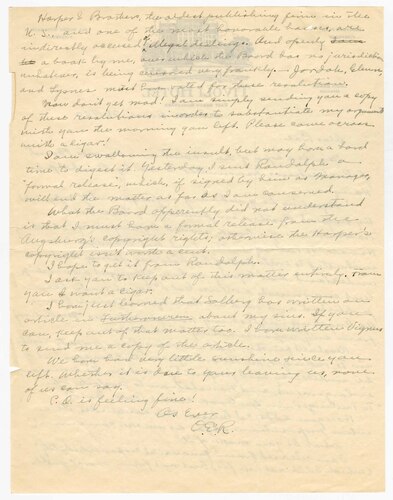 Harper & Brothers, the oldest publishing firm in the
U. S. and one of the most honorable houses, are
indirectly accused of illegal dealings. And openly
a book by me, over which the Board has no jurisdiction
whatever, is being censored very frankly.
and most have voted for these resolutions.
Now don't get mad! I am simply sending you a copy
of these resolutions in order to substantiate my argument
with you the morning you left. Please come across
with a cigar!
I am swallowing the insult, but may have a hard
time to digest it. Yesterday, I sent Randolph a
formal release, which, if signed by him as Manager,
will end the matter as far as I am concerned.
What the Board apparently did not understand
is that I must have a formal release from the
Augsburg's copyright rights; otherwise the Harper's
copyright isn't worth a cent.
I hope to get it from Randolph.
I ask you to keep out of this matter entirely. From
you I want a cigar.
I have just learned that Solberg has written an
article in about my sins. If you
can, keep out of that matter too. I have written
to send me a copy of the article.
We have had very little sunshine since you
left. Whether it is due to your leaving us, none
of us can say.
is feeling fine!
As Ever
O.E.R.